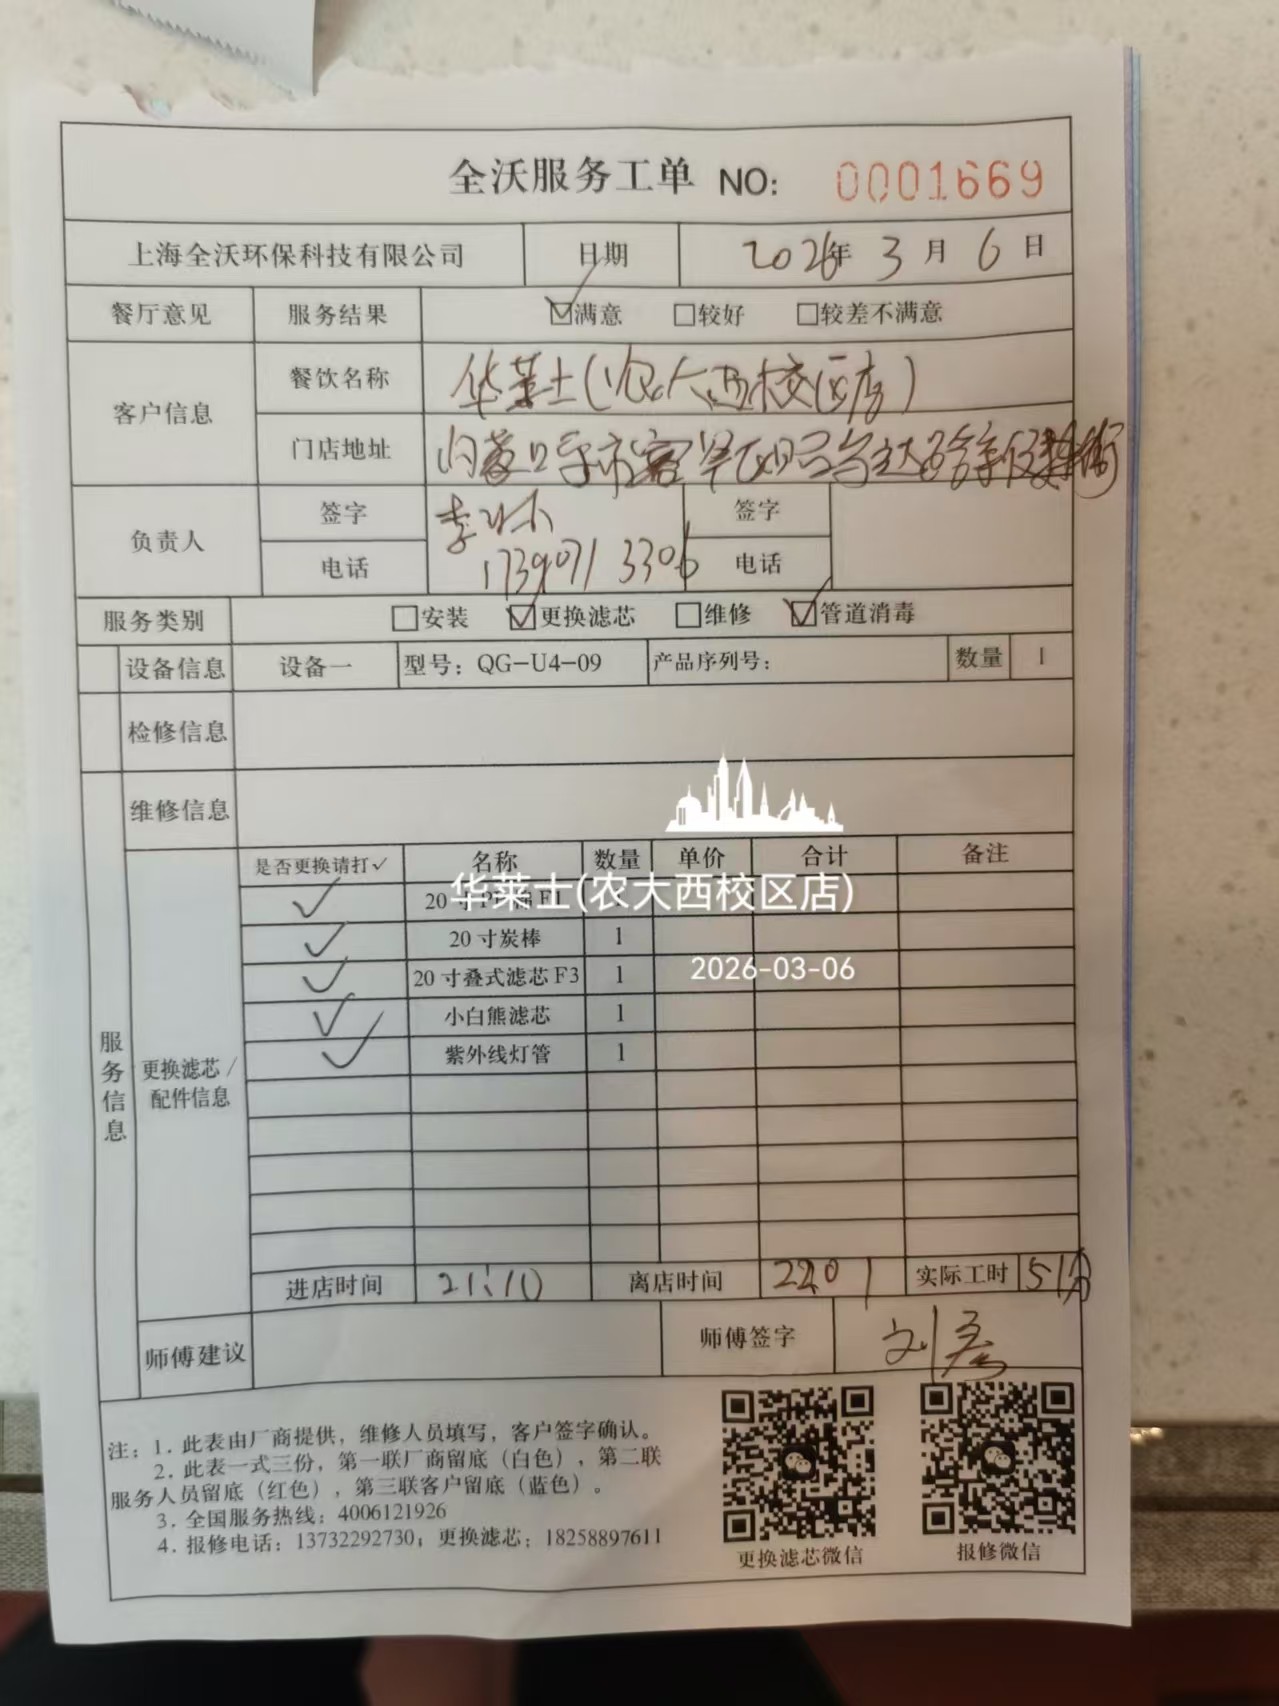 全沃服务工单 NO: 0001669
上海全沃环保科技有限公司 日期 2026年 3月 6日
餐厅意见 服务结果 ☑满意 □较好 □较差不满意
客户信息 餐饮名称 华莱士(农大西校区店)
门店地址 内蒙呼市
负责人 签字 签字
电话 17390713306 电话
服务类别 □安装 ☑更换滤芯 □维修 ☑管道消毒
设备信息 设备一 型号：QG-U4-09 产品序列号： 数量 1
检修信息
维修信息
服务信息
更换滤芯/
配件信息
是否更换请打✓ 名称 数量 单价 合计 备注
✓ 20寸
华莱士(农大西校区店)
✓ 20寸炭棒 1
2026-03-06
✓ 20寸叠式滤芯F3 1
✓ 小白熊滤芯 1
✓ 紫外线灯管 1
进店时间 21:10 离店时间 2201 实际工时 51分
师傅建议 师傅签字
注：1. 此表由厂商提供，维修人员填写，客户签字确认。
2. 此表一式三份，第一联厂商留底（白色），第二联
服务人员留底（红色），第三联客户留底（蓝色）。
3. 全国服务热线：4006121926
4. 报修电话：13732292730；更换滤芯：18258897611
更换滤芯微信 报修微信